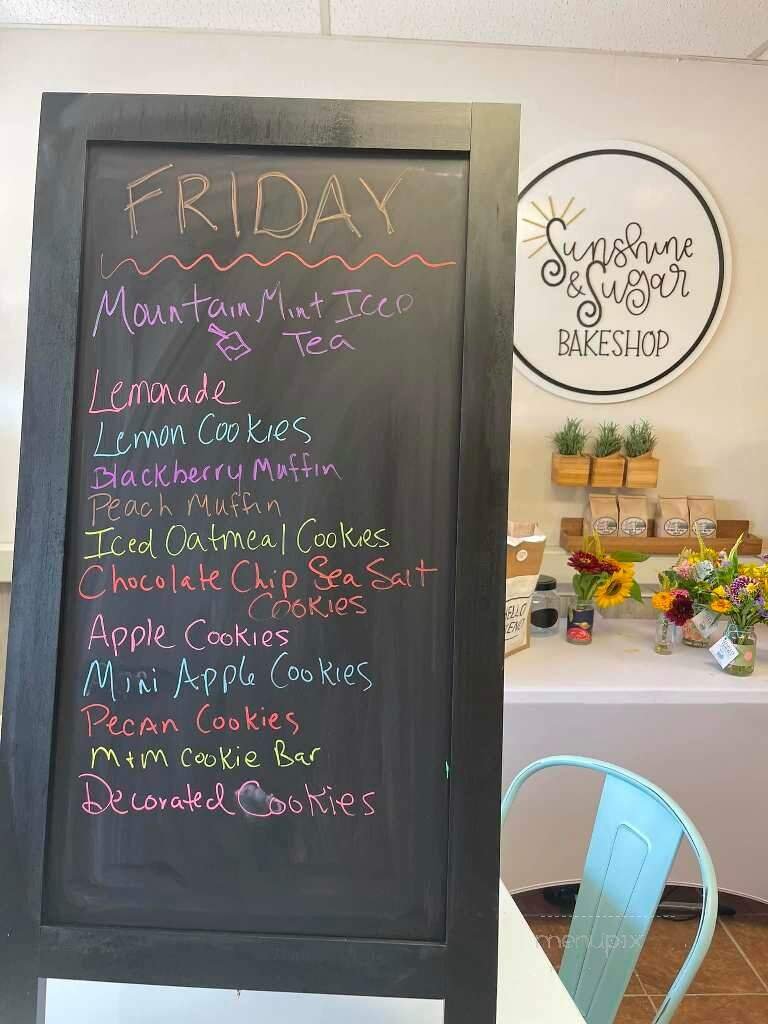 FRIDAY
Mountain Mint Iced
Tea
Lemonade
Lemon Cookies
Blackberry Muffin
Peach Muffin
Iced Oatmeal Cookies
Chocolate Chip Sea Salt
Cookies
Apple Cookies
Mini Apple Cookies
Pecan Cookies
M+M Cookie Bar
Decorated Cookies
Sunshine
& Sugar
BAKESHOP
menupix